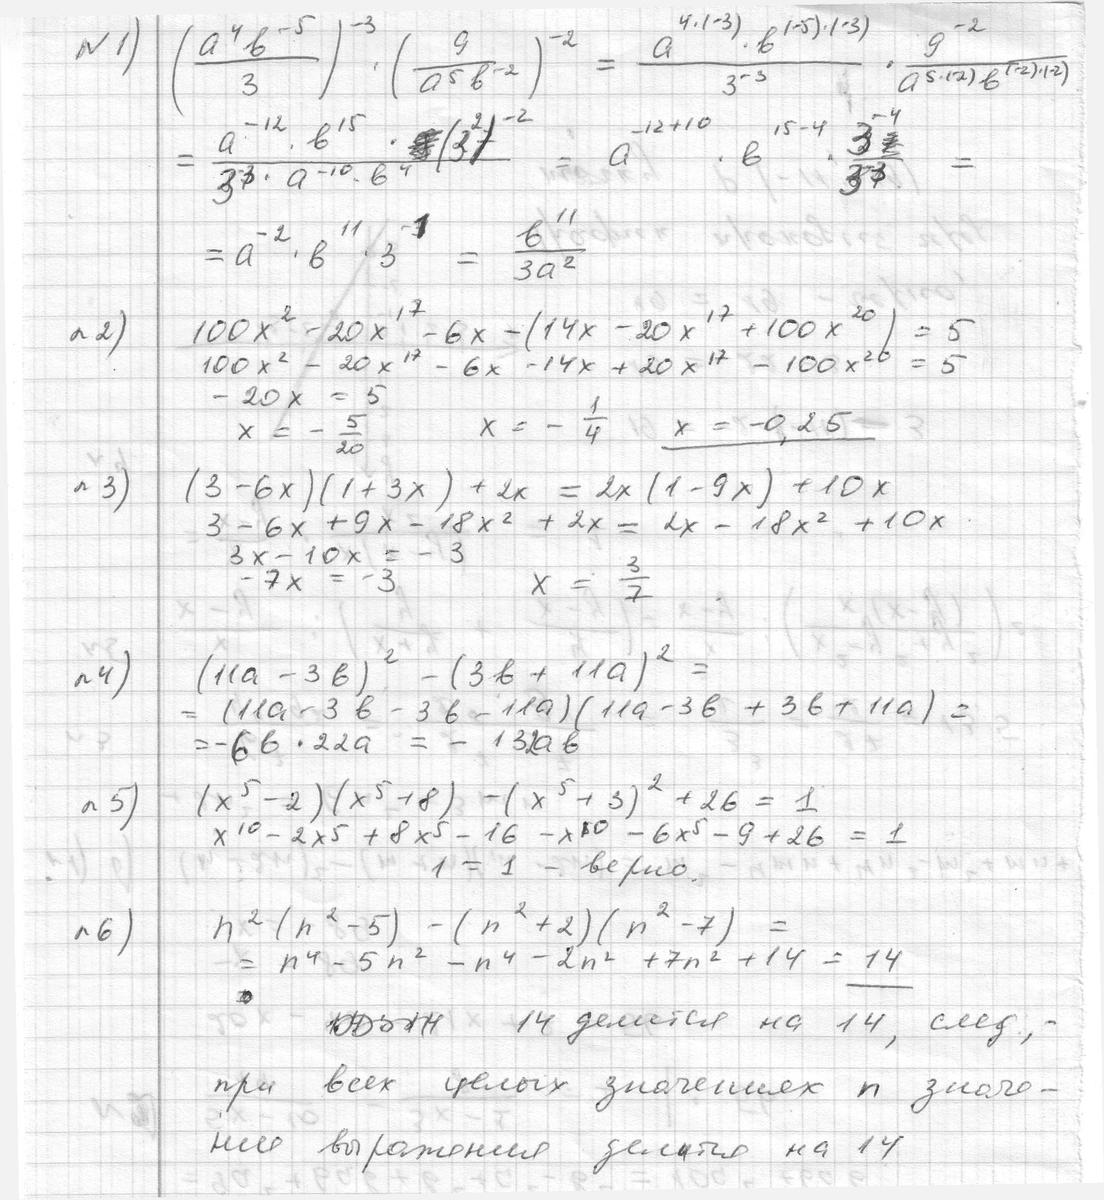 N1) (a⁴b⁻⁵/3)⁻³ · (9/(a⁵b⁻²))⁻² = (a⁴·⁽⁻³⁾ · b⁽⁻⁵⁾·⁽⁻³⁾)/3⁻³ · 9⁻²/(a⁵·⁽⁻²⁾ b⁽⁻²⁾·⁽⁻²⁾)
= (a⁻¹² · b¹⁵ · (3²)⁻²)/(3⁻³ · a⁻¹⁰ · b⁴) = a⁻¹²⁺¹⁰ · b¹⁵⁻⁴ · 3⁻⁴/3⁻³ =
= a⁻² · b¹¹ · 3⁻¹ = b¹¹/(3a²)
n2) 100x² - 20x¹⁷ - 6x - (14x - 20x¹⁷ + 100x²⁰) = 5
100x² - 20x¹⁷ - 6x - 14x + 20x¹⁷ - 100x²⁰ = 5
- 20x = 5
x = - 5/20 x = - 1/4 x = -0,25
n3) (3 - 6x)(1 + 3x) + 2x = 2x(1 - 9x) + 10x
3 - 6x + 9x - 18x² + 2x = 2x - 18x² + 10x
3x - 10x = - 3
-7x = -3 x = 3/7
n4) (11a - 3b)² - (3b + 11a)² =
= (11a - 3b - 3b - 11a)(11a - 3b + 3b + 11a) =
= -6b · 22a = - 132ab
n5) (x⁵ - 2)(x⁵ + 8) - (x⁵ + 3)² + 26 = 1
x¹⁰ - 2x⁵ + 8x⁵ - 16 - x¹⁰ - 6x⁵ - 9 + 26 = 1
1 = 1 - верно.
n6) n²(n² - 5) - (n² + 2)(n² - 7) =
= n⁴ - 5n² - n⁴ - 2n² + 7n² + 14 = 14
14 делится на 14, след.,-
при всех целых значениях n значе-
ние выражения делится на 14